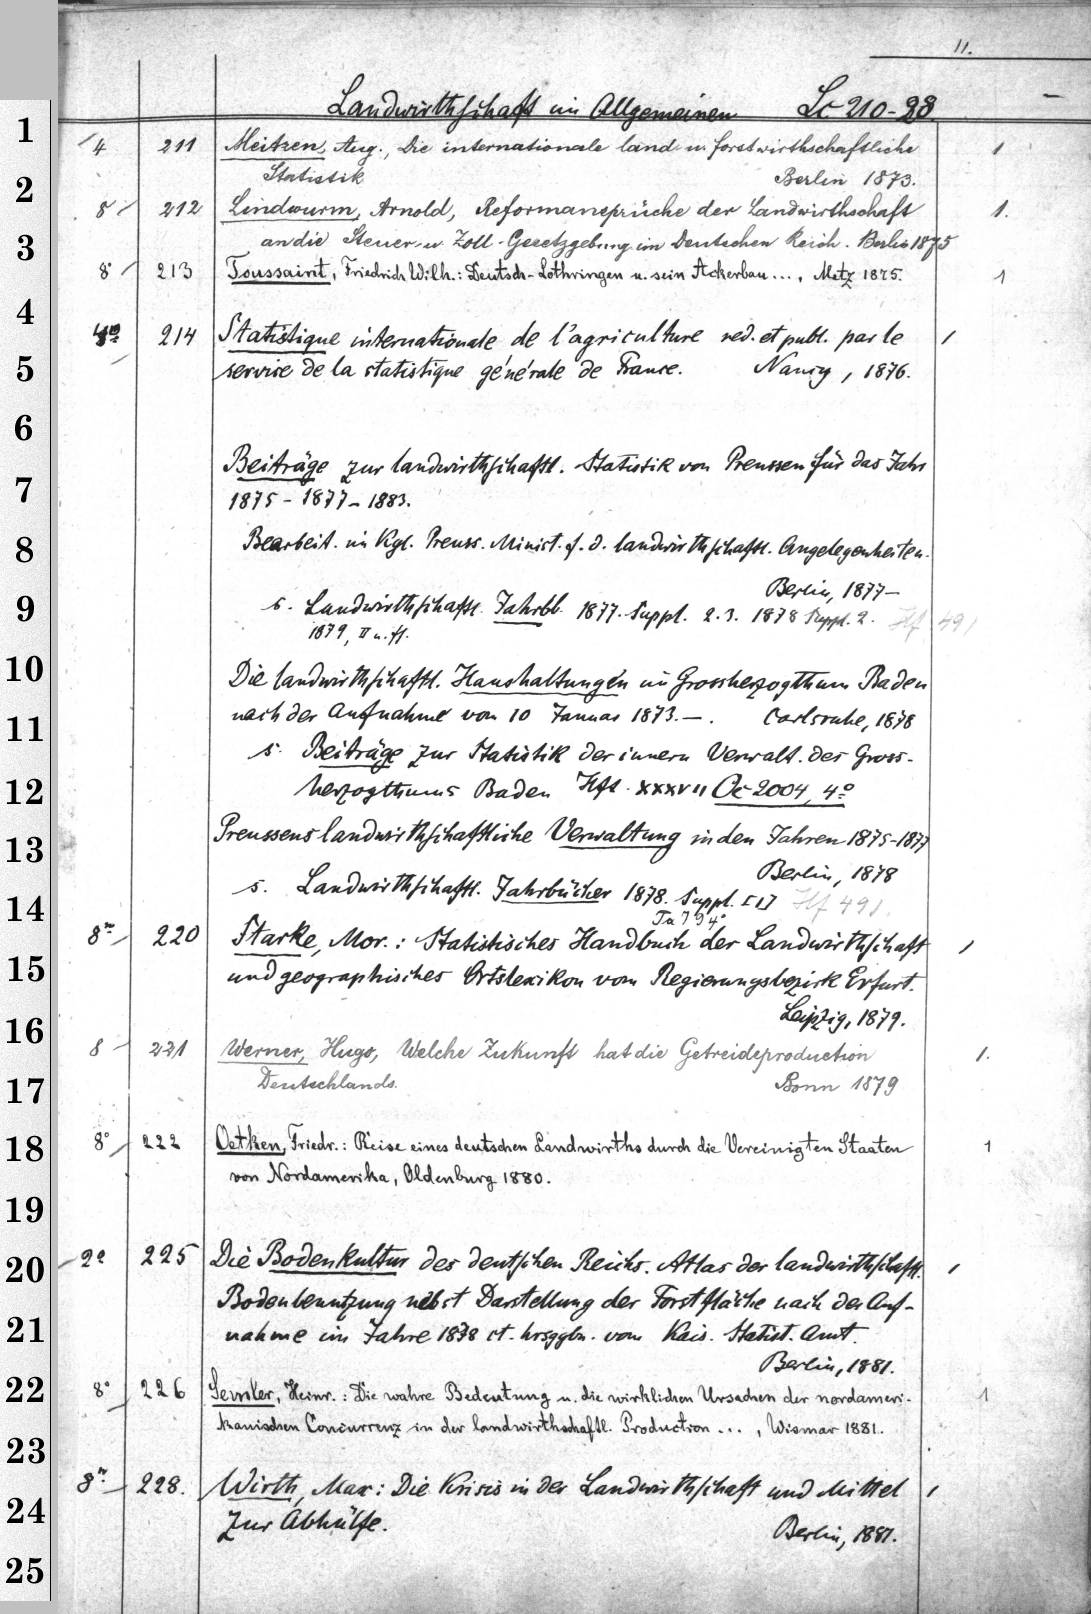 11.
Landwirthschaft im Allgemeinen Lc 210-28
1
4 211 Meitzen, Aug., Die internationale land- u. forstwirthschaftliche 1
2
Statistik Berlin 1873.
8 212 Lindwurm, Arnold, Reformansprüche der Landwirthschaft 1.
3
an die Steuer- u. Zoll-Gesetzgebung im Deutschen Reich. Berlin 1875
8° 213 Toussaint, Friedrich Wilh.: Deutsch-Lothringen u. sein Ackerbau..., Metz 1875. 1
4
214 Statistique internationale de l'agriculture red. et publ. par le 1
5
service de la statistique générale de France. Nancy, 1876.
6
Beiträge zur landwirthschaftl. Statistik von Preussen für das Jahr
7
1875-1877-1883.
8
Bearbeit. im Kgl. Preuss. Minist. f. d. landwirthschaftl. Angelegenheiten.
Berlin, 1877-
9
s. Landwirthschaftl. Jahrbb. 1877. Suppl. 2.3. 1878 Suppl. 2. Hf 491
1879, II u. ff.
10
Die landwirthschaftl. Haushaltungen im Grossherzogthum Baden
11
nach der Aufnahme vom 10 Januar 1873.—. Carlsruhe, 1878
s. Beiträge zur Statistik der innern Verwalt. des Gross-
12
herzogthums Baden Hft. XXXVII Oc 2004, 4°
13
Preussens landwirthschaftliche Verwaltung in den Jahren 1875-1877
Berlin, 1878
14
s. Landwirthschaftl. Jahrbücher 1878. Suppl. [1] Hf 491.
8° 220 Starke, Mor.: Statistisches Handbuch der Landwirthschaft 1
15
und geographisches Ortslexikon vom Regierungsbezirk Erfurt.
16
Leipzig, 1879.
8 221 Werner, Hugo, Welche Zukunft hat die Getreideproduction 1.
17
Deutschlands. Bonn 1879
18
8° 222 Oetken, Friedr.: Reise eines deutschen Landwirths durch die Vereinigten Staaten 1
von Nordamerika, Oldenburg 1880.
19
20
2° 225 Die Bodenkultur des deutschen Reichs. Atlas der landwirthschaftl. 1
21
Bodenbenutzung nebst Darstellung der Forstfläche nach der Auf-
nahme im Jahre 1878 etc. hrsggbn. vom Kais. Statist. Amt.
Berlin, 1881.
22
8° 226 Semler, Heinr.: Die wahre Bedeutung u. die wirklichen Ursachen der nordameri- 1
kanischen Concurrenz in der landwirthschaftl. Production..., Wismar 1881.
23
8° 228. Wirth, Max: Die Krisis in der Landwirthschaft und Mittel 1
24
zur Abhülfe. Berlin, 1881.
25